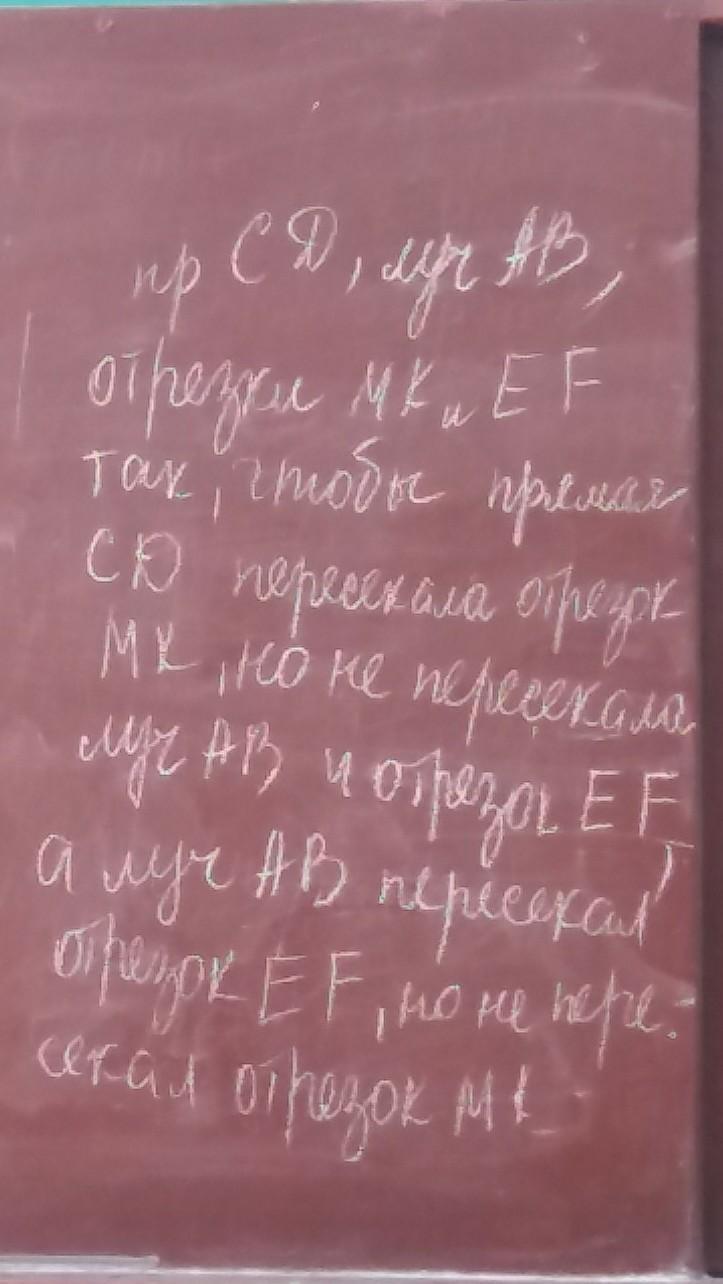 пр CD, луч AB,
отрезки MK и EF
так, чтобы прямая
CD пересекала отрезок
MK, но не пересекала
луч AB и отрезок EF,
а луч AB пересекал
отрезок EF, но не пере-
секал отрезок MK